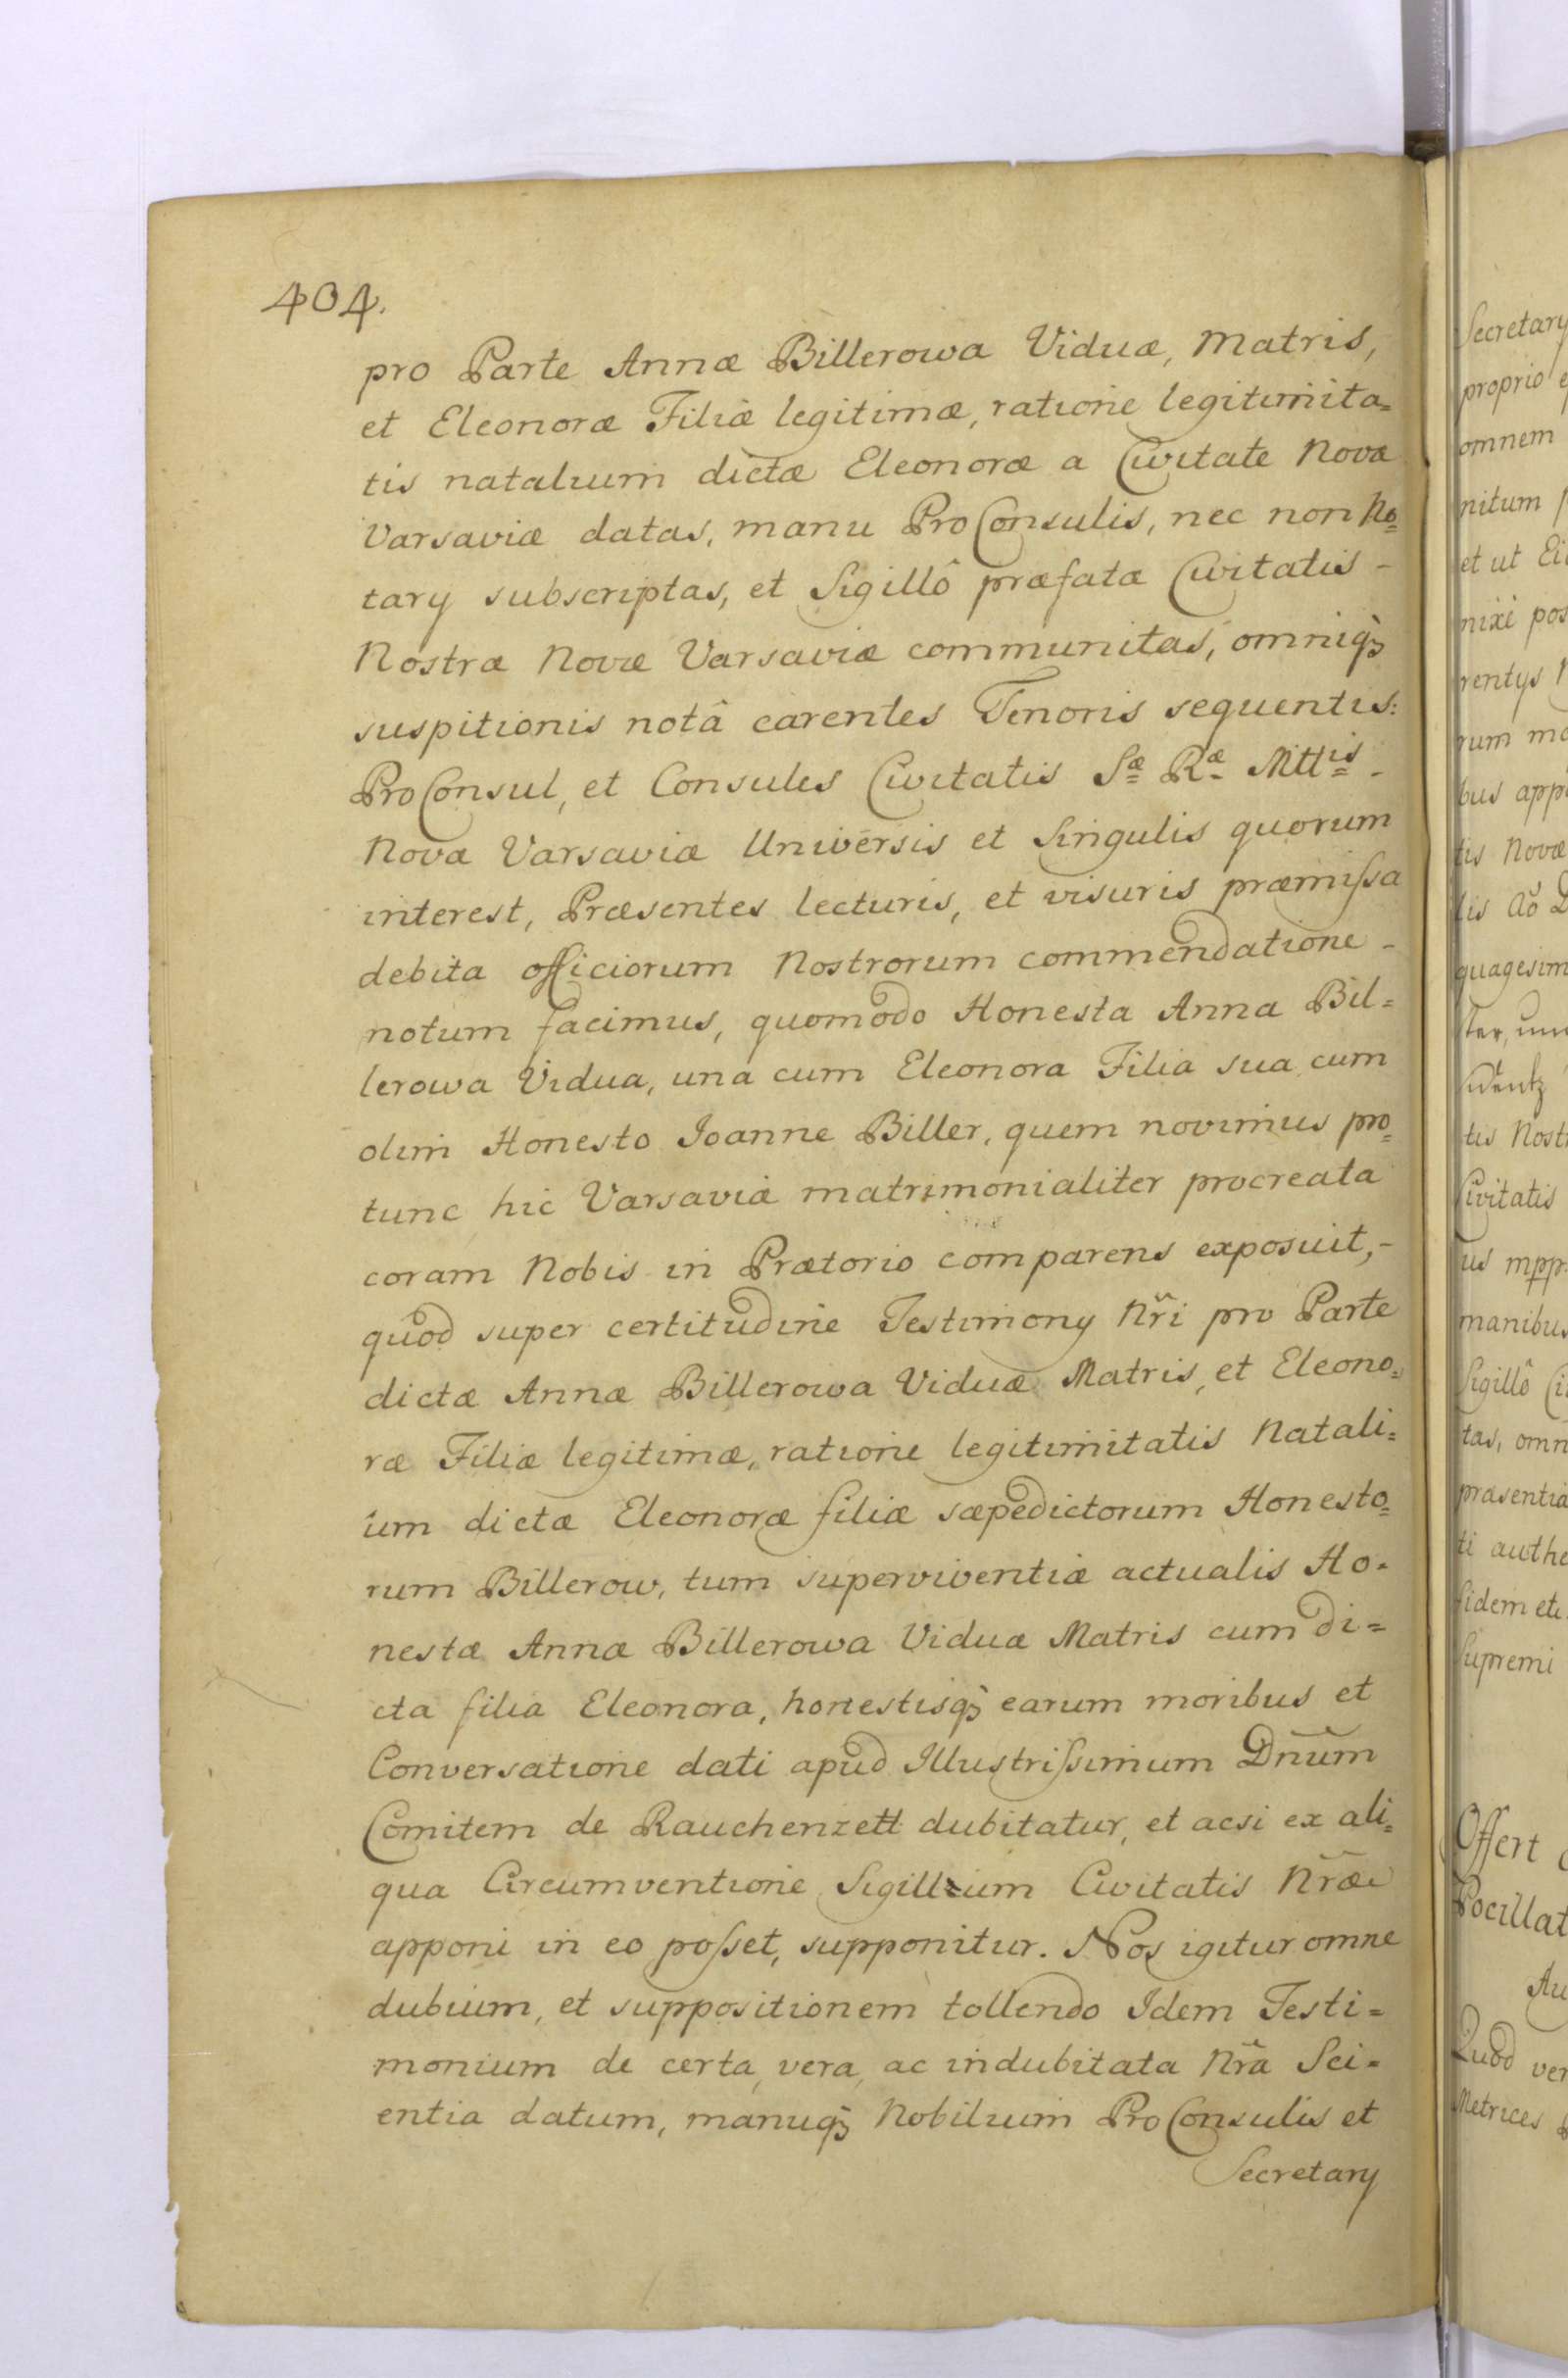 404.
pro Parte Annæ Billerowa Viduæ, Matris,
et Eleonoræ Filiæ legitimæ, ratione legitimita=
tis natalium dictæ Eleonoræ a Civitate Novæ
Varsaviæ datas, manu ProConsulis, nec non No=
tary subscriptas, et Sigillô præfatæ Civitatis -
Nostræ Novæ Varsaviæ communitas, omniq3
suspitionis notâ carentes Tenoris sequentis:
ProConsul, et Consules Civitatis Sæ Ræ Mttis -
Novæ Varsaviæ Universis et Singulis quorum
interest, Præsentes lecturis, et visuris præmissa
debita officiorum Nostrorum commendatione -
notum facimus, quomodo Honesta Anna Bil=
lerowa Vidua, una cum Eleonora Filia sua cum
olim Honesto Joanne Biller, quem novimus pro=
tunc hic Varsaviæ matrimonialiter procreata
coram Nobis in Prætorio comparens exposuit, -
quod super certitudine Testimony Nr̃i pro Parte
dictæ Annæ Billerowa Viduæ Matris, et Eleono=
ræ Filiæ legitimæ, ratione legitimitatis Natali=
um dictæ Eleonoræ filiæ sæpedictorum Honesto=
rum Billerow, tum superviventiæ actualis Ho=
nestæ Annæ Billerowa Viduæ Matris cum di=
cta filia Eleonora, honestisq3 earum moribus et
Conversatione dati apud Illustrissimum Dnũm
Comitem de Rauchenzett dubitatur, et acsi ex ali=
qua Circumventione Sigillium Civitatis Nr̃æ
apponi in eo posset, supponitur. Nos igitur omne
dubium, et suppositionem tollendo Idem Testi=
monium de certa, vera, ac indubitata Nr̃a Sci=
entia datum, manuq3 Nobilium ProConsulis et
Secretary
Secretary
proprio
omnem
nitum
et ut
nixi
rentys
rum
bus
tis Novæ
lis Aõ
quagesim
tis Nost
Civitatis
us mpp
manibus
Sigillô
tas, omn
præsentia
ti authe
fidem
Supremi
Offert
Pocillat
Au
Quod ver
Metrices